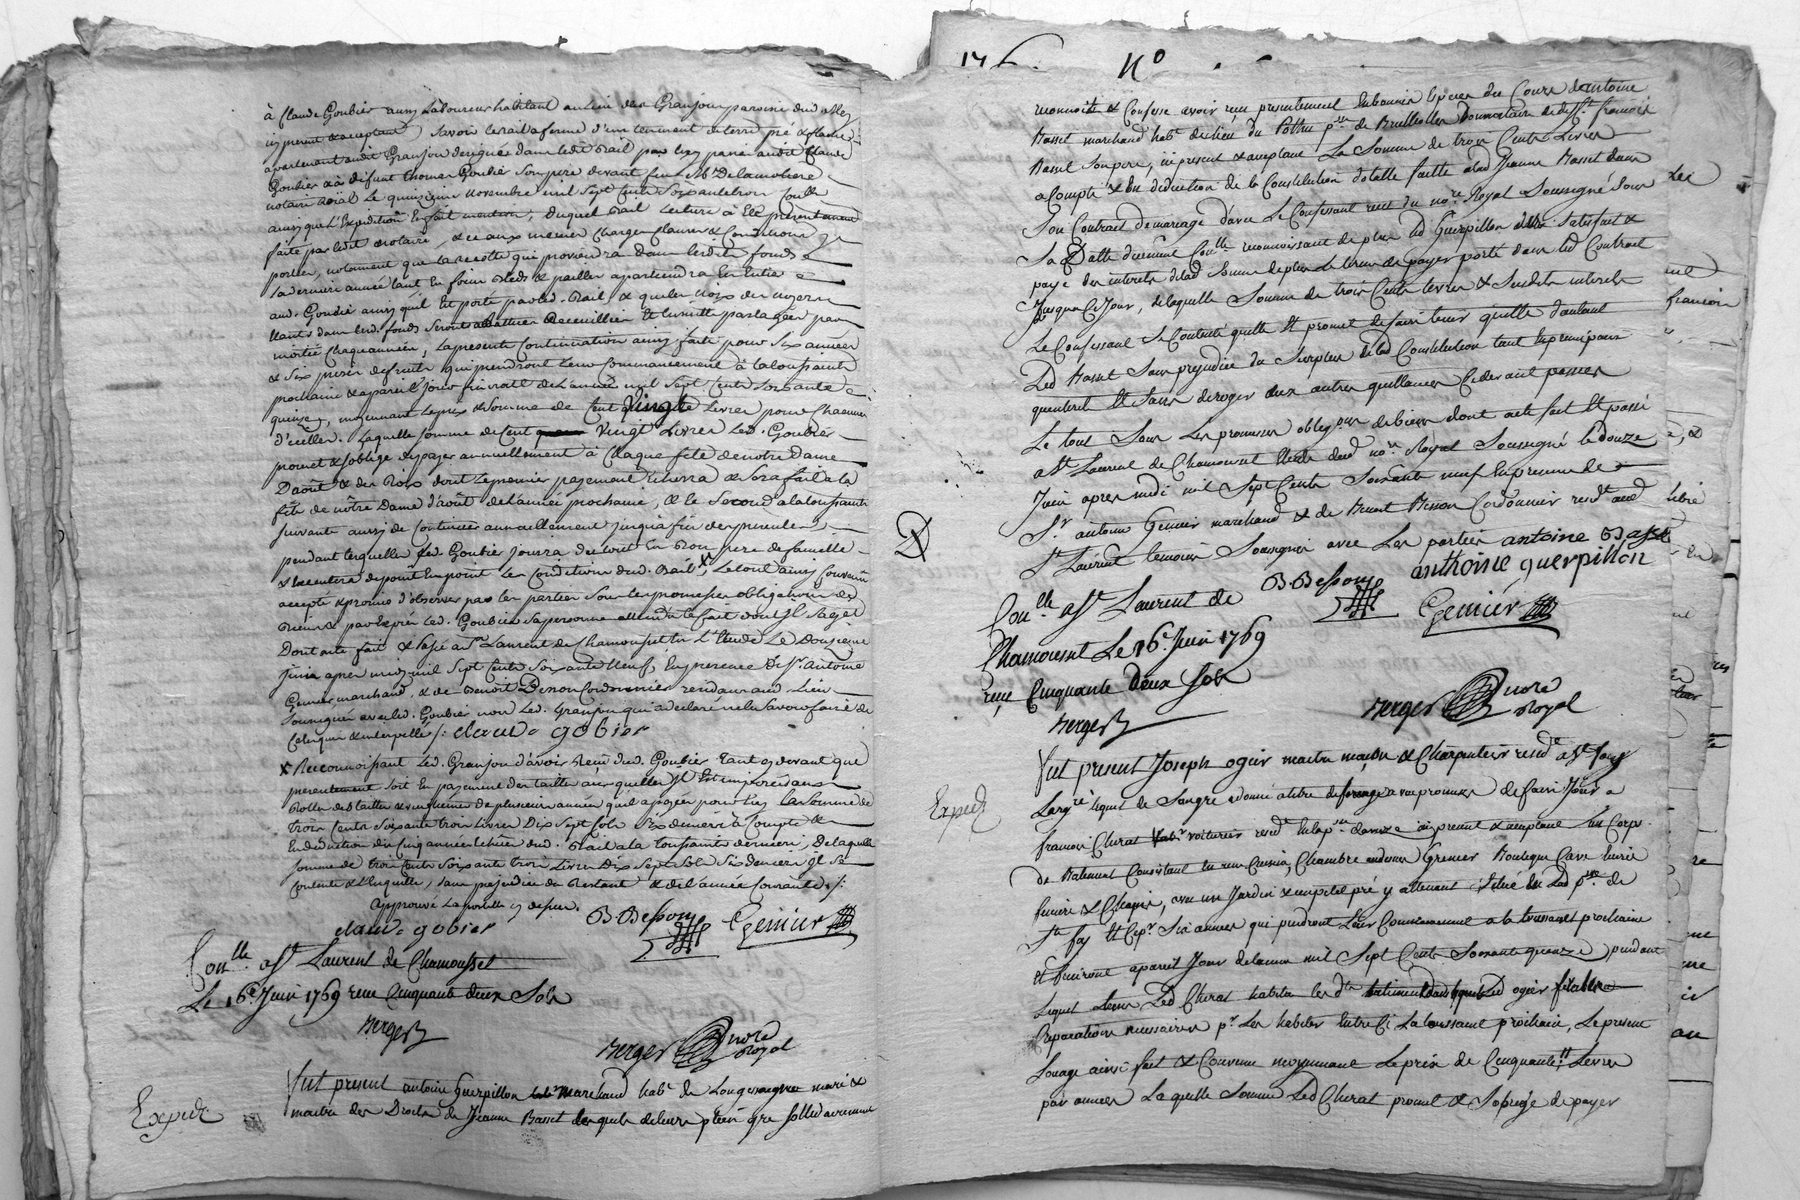 à Claude Goubier aussy Laboureur habitant au lieu des Granjon paroisse dud
icy present & acceptant, Savoir le bail a ferme d'un tenement de terre pré &
apartenant audit Granjon designés dans ledit Bail par luy passé audit Claude
Goubier & à défunt thomas Goubier Son pere devant feu Me Delamoliere
notaire Roial Le quinzieme novembre mil Sept Cents Soixante trois Conllé
ainsy que L'Expedition En fait mention, duquel Bail Lecture à Eté presentement
faite par ledit notaire, & ce aux mêmes Charges Clauses & Conditions y
portées, notamment que la recolte qui proviendra Dans lesdits fonds
la derniere année tant En foin Bleds & pailles apartiendra En Entier
aud. Goubié ainsy qu'il Est porté par led. Bail & que les Noix des noyers
Etants dans lesd. fonds Seront abbattues Recueillies Et Ensuitte partagées par
moitié Chaque année, La presente Continuation ainsy faite pour Six années
& Six prises de fruits qui prendront Leur Commancement à la toussaint
prochaine & à pareil Jour finiront de L'année mil Sept Cents Soixante
quinze, moyennant Le prix & Somme de Cent Vingt Livres pour Chacune
d'icelles. Laquelle Somme de Cent Vingt Livres Led. Goubier
promet & s'oblige de payer annuellement à Chaque fête de notre Dame
D'août & des Rois dont Le premier payement Echerra & Sera fait a la
fête de nôtre Dame d'août de L'année prochaine, & le Second a la toussaints
Suivante ainsy de Continuer annuellement jusqu'a fin desd.
pendant lesquelles Led. Goubier Jouira du tout En Bon pere de famille
& Executera de point En point Les Conditions dud. Bail x, Le tout ainsy Convenu
accepté & promis d'observer par les parties Sous les promesses obligations de
Biens & par Exprès Led. Goubier Sa personne attendu le fait dont Il S'agit
Dont acte fait & Passé a St Laurent de Chamousset En L'Etude Le Douzieme
Juin après midy mil Sept Cents Soixante Neuf, En presence de Sr. Antoine
Genier marchand, & de Benoît Besson Cordonnier residants aud. Lieu
Soussignés avec led. Goubier non Led. Granjon qui a declaré ne le Savoir faire de
Ce Enquis & interpellé /: claude gobier
x Reconnoissant Led. Granjon d'avoir Recu dud. Goubier tant cy devant que
presentement soit En payement des tailles aux quelles Il Est imposé dans
Rolles des tailles & vingtiemes de plusieurs années qu'il a payés pour luy La Somme de
trois Cents Soixante trois Livres Dix Sept Sols Six deniers à Compte &
En deduction des Cinq années Echues dud. Bail a la Toussaints derniere, De laquelle
Somme de trois Cents Soixante trois Livres Dix Sept Sols Six deniers Il Se
Contente & L'En quitte, Sans prejudice du Restant & de L'année Courante /:
Approuvé La postille cy dessus.
claude gobier
B. Besson
Genier
Conllé. a St Laurent de Chamousset
Le 16e Juin 1769 reçu Cinquante deux Sols
Berger
Berger nore Royal
Expedié
Fut present antoine Guerpillon marchand habt. de Longessaigne mari &
maitre des Droits de Jeanne Basset Lequel de leurs plein gré Solidairement
176 No
reconnoit & Confesse avoir reçu presentement En bonnes Especes du Cours d'antoine
Basset marchand habt. du lieu du Pothu psse de Brullioles Donnataire de deft francois
Basset Son pere, ici present & aceptant La Somme de trois Cents Livres
a Compte & En deduction de la Constitution dotalle faitte alad Jeanne Basset dans
Son Contrat de mariage d'avec Le Confessant recu du nore. Royal Soussigné Sous
Sa Datte duement Conllé reconnoissant de plus led Guerpillon Satisfait &
payé des interets delad Somme depuis Le terme de payer porté dans led Contrat
Jusqu'a Ce Jour, de laquelle Somme de trois Cents Livres & Susdits interets
Le Confessant Se Contente quitte Et promet de faire tenir quitte d'autant
Led Basset Sans prejudice du Surplus delad Constitution tant En principaux
qu'interets Et Sans deroger aux autres quittances Cidevant passées
Le tout Sous Les promesses obligons. de biens dont acte fait Et passé
a St Laurent de Chamousset Etude dud nore. Royal Soussigné le douze
Juin apres midi mil Sept Cents Soixante neuf En presence de
Sr. antoine Genier marchand & de Benoit Besson Cordonnier residt aud
St Laurent temoins Soussignés avec Les parties antoine Basset
anthoine guerpillon
B. Besson
Genier
Conllé a St Laurent de
Chamousset Le 16e. Juin 1769
reçu Cinquante deux Sols
Berger
Berger nore Royal
Expedié
Fut present Joseph ogier maitre maçon & Charpentier residt a St foy
Largre lequel de Son gre a donné a titre de louage avec promesse de faire Jouir a
francois Cherat voiturier residt En lapsse d'aveize ici present & aceptant Un Corps
de Batiment Consistant En une Cuisine, Chambre au dessus Grenier Boutique Cave Ecurie
feniere & Chapis, avec un Jardin & un petit pré y attenant Situé En Lad psse de
Ste foy Et Cepr. Six années qui prendront Leur Commencement a la toussaint prochaine
Et finiront a pareil Jour de lannée mil Sept Cents Soixante quinze, pendant
Lequel tems Led Cherat habitera lesdts batiments dans lequels Led ogier fera les
Reparations necessaires pr Les habiter Entre Ci La toussaint prochain, Le present
Louage ainsi fait & Convenu moyennant Le prix de Cinquante Livres
par année La quelle Somme Led Cherat promet & Soblige de payer